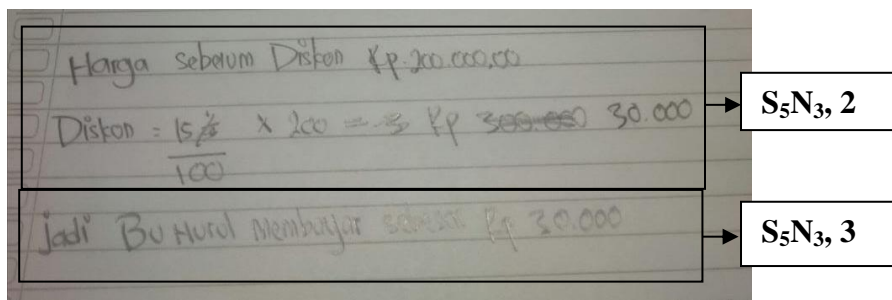 Harga sebelum Diskon Rp.200.000,00
Diskon = 15% × 200 = Rp 30.000 S₅N₃, 2
100
jadi Bu Nurul Membayar sebesar Rp 30.000 S₅N₃, 3